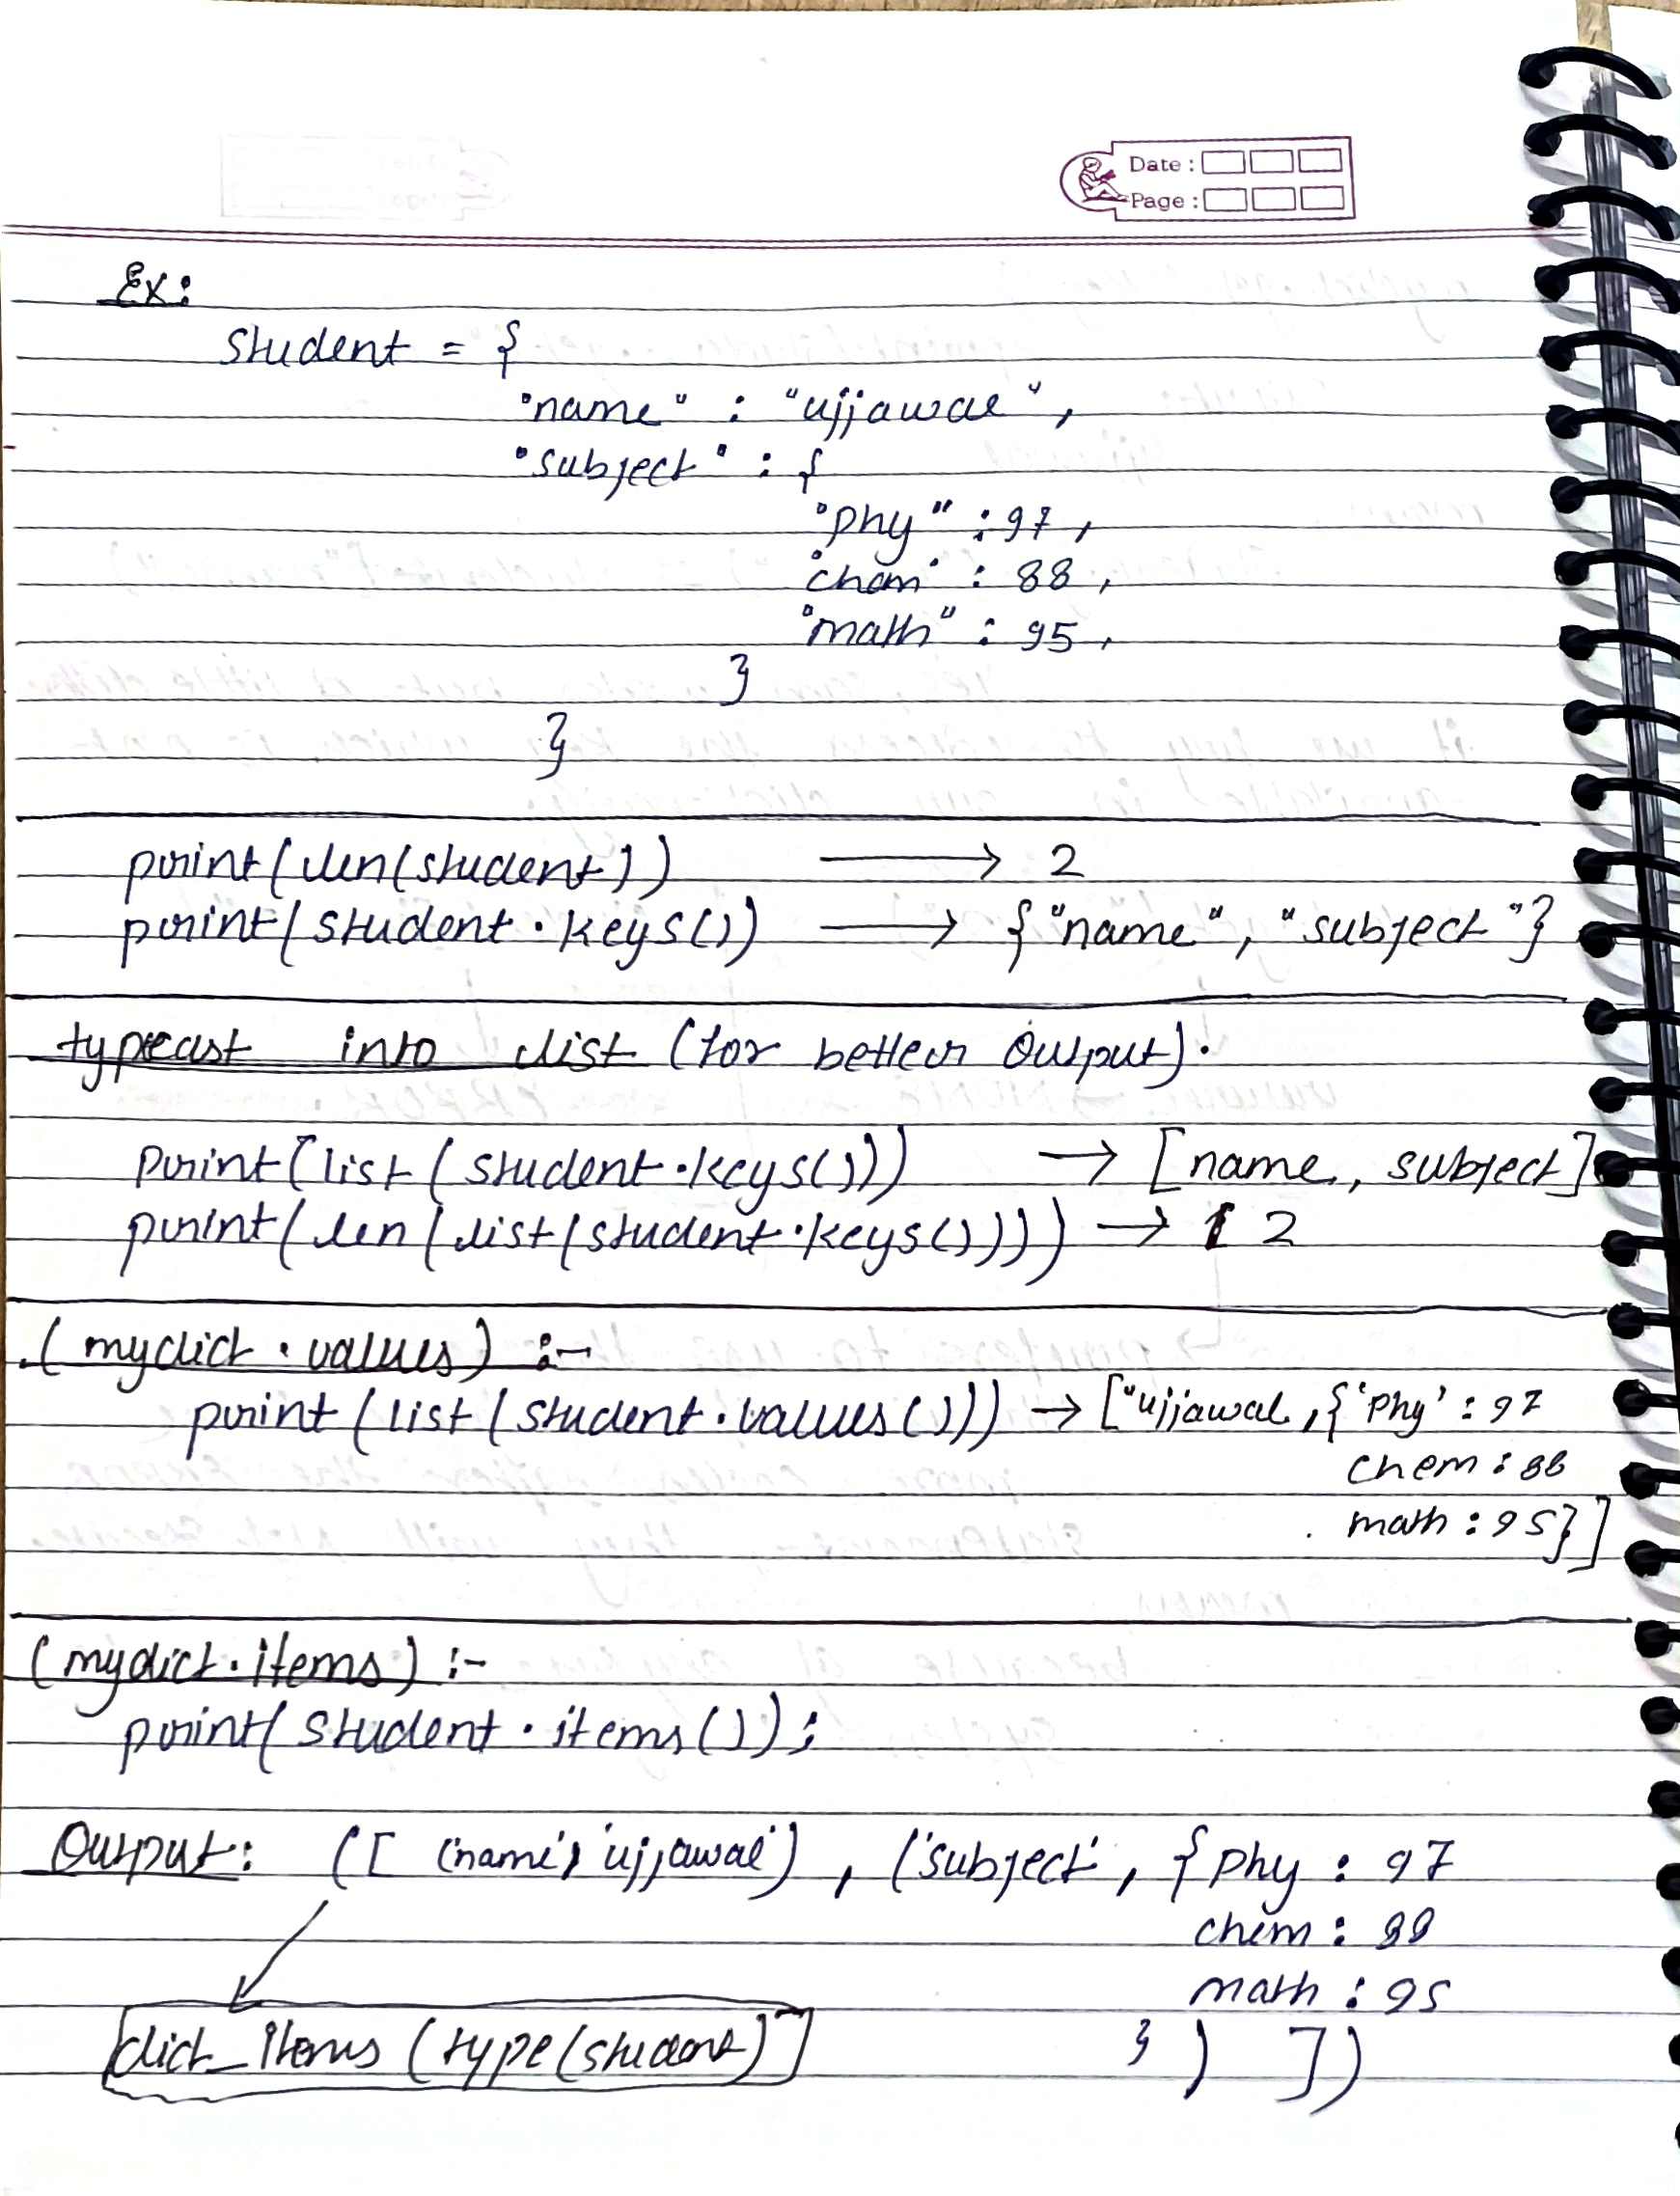 Date :
Page :
Ex:
student = {
"name" : "ujjawal",
"subject" : {
"phy" : 97,
"chem" : 88,
"math" : 95,
}
}
print(len(student)) → 2
print(student.keys()) → {"name", "subject"}
typecast into list (for better output).
print(list(student.keys())) → [name, subject]
print(len(list(student.keys()))) → 2
(mydict.values) :-
print(list(student.values())) → ["ujjawal, {'phy' : 97
chem : 88
math : 95}]
(mydict.items) :-
print(student.items());
Output: ([ ('name', 'ujjawal'), ('subject', { phy : 97
chem : 88
math : 95
dict_items (type(student) } ) ])